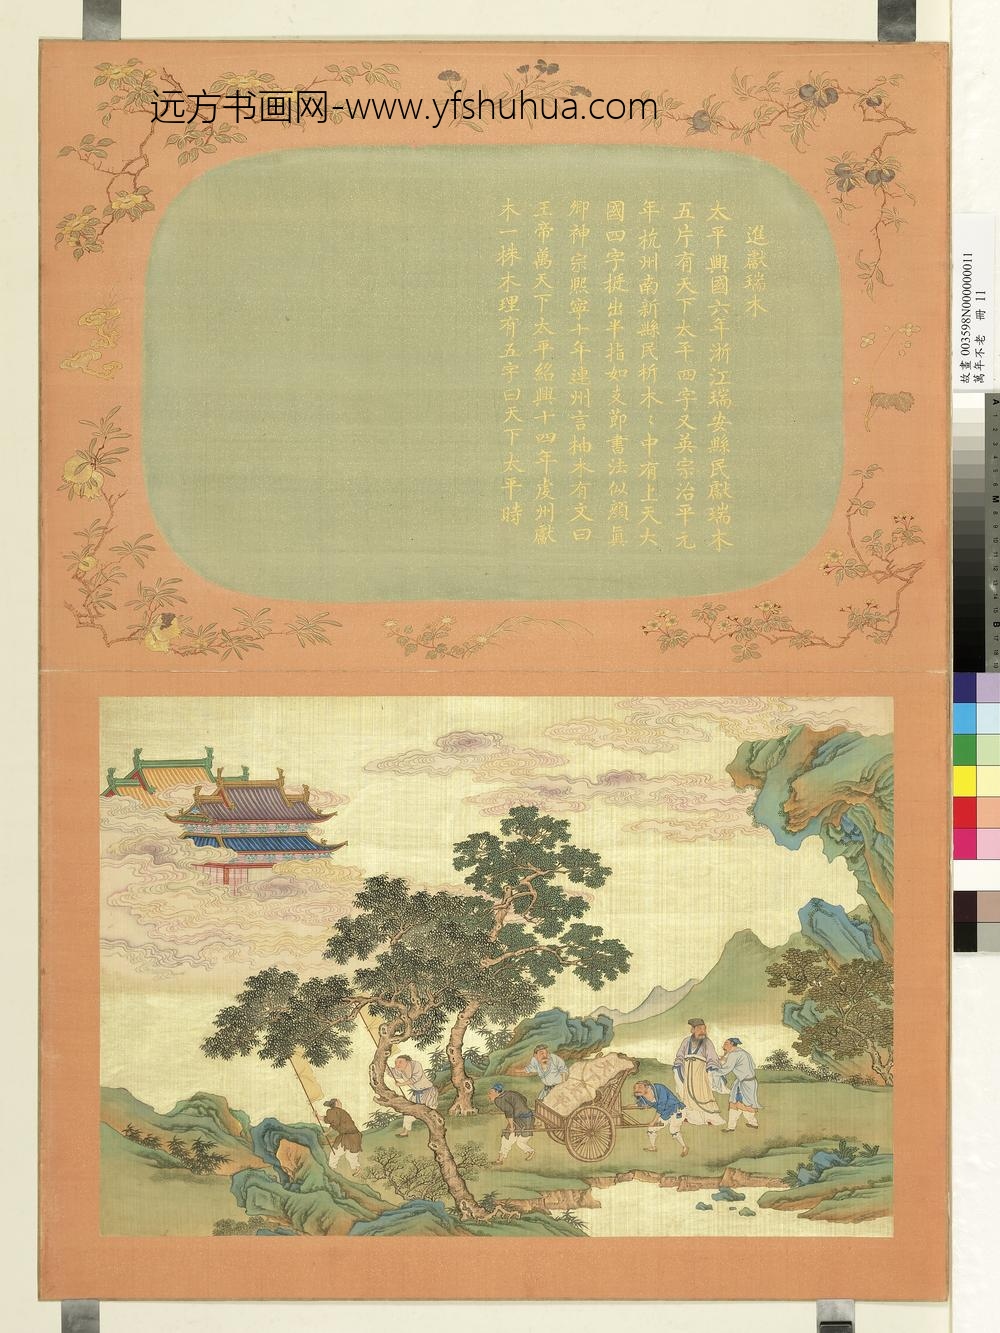 远方书画网-www.yfshuhua.com
進獻瑞木
太平興國六年浙江瑞安縣民獻瑞木
五片有天下太平四字又英宗治平元
年杭州南新縣民析木〻中有上天大
國四字挺出半指如支節書法似顏真
卿神宗熙寧十年連州言柚木有文曰
王帝萬天下太平紹興十四年虔州獻
木一株木理有五字曰天下太平時
故畫 003598N000000011
萬年不老 冊 11